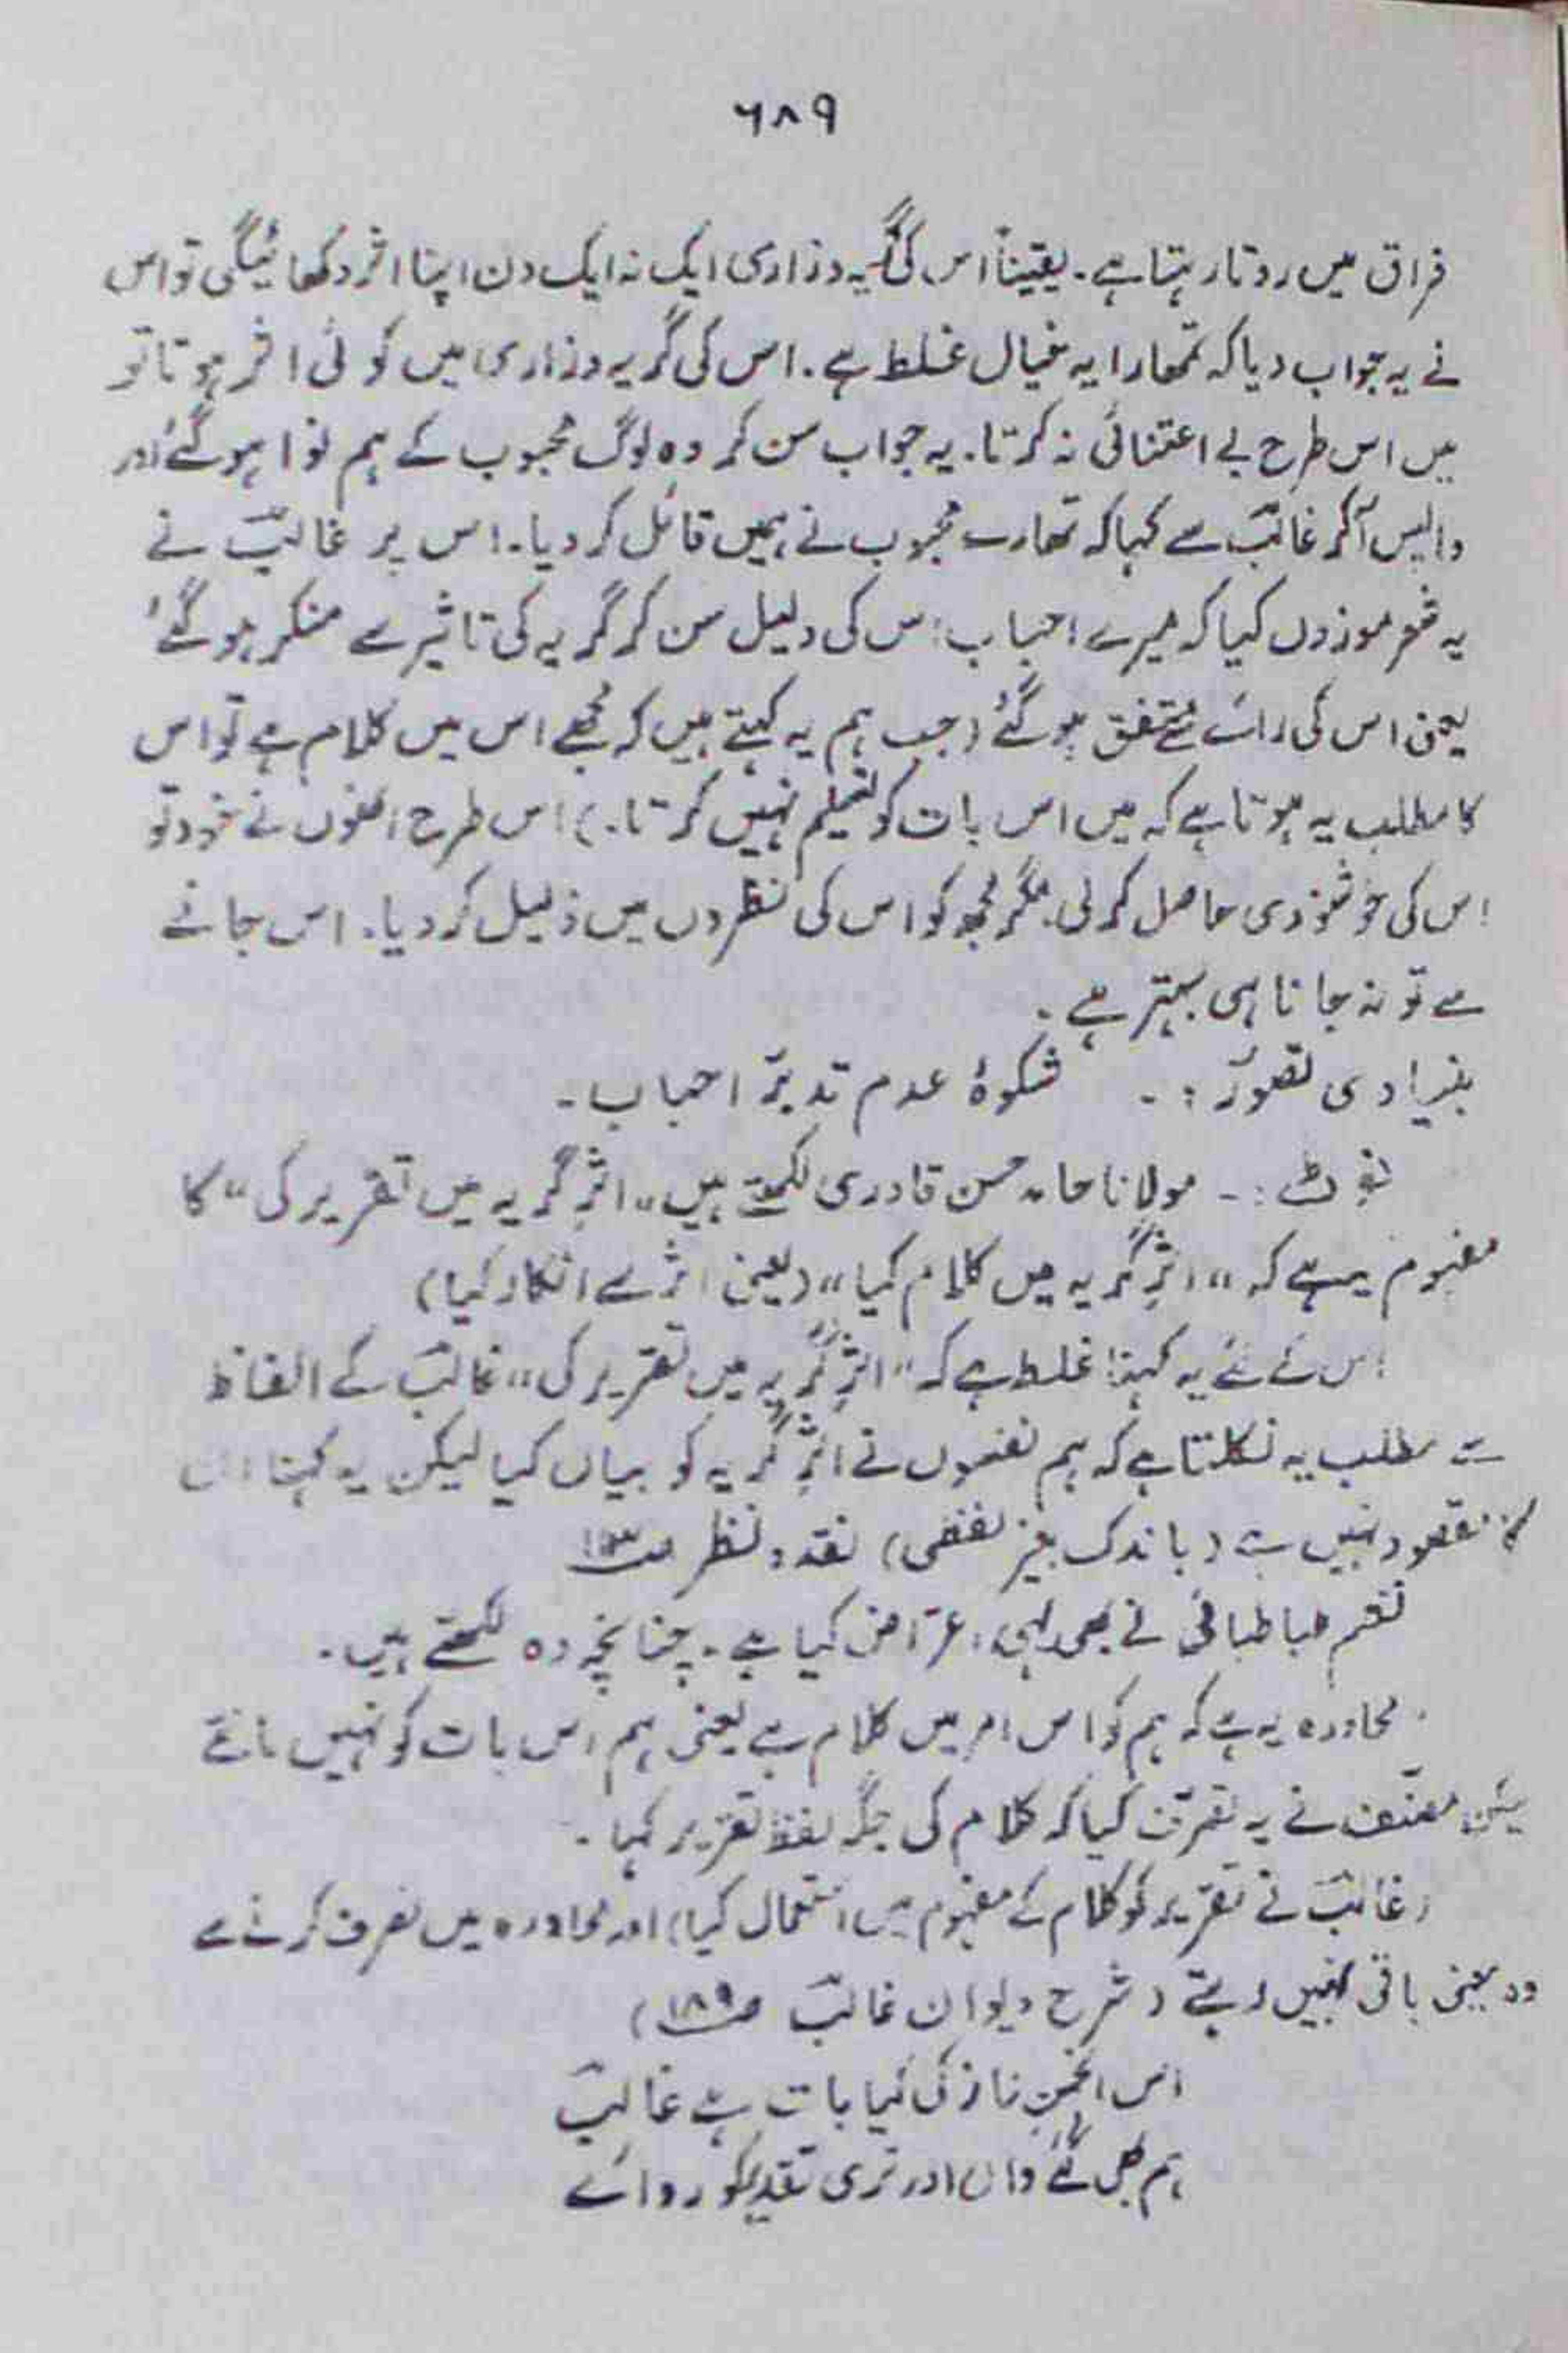 ۶۸۹
فراق میں روتا رہتا ہے۔ یقیناً اس کی گریہ وزاری ایک نہ ایک دن اپنا اثر دکھائیگی تو اس
نے یہ جواب دیا کہ تمھارا یہ خیال غلط ہے۔ اس کی گریہ وزاری میں کوئی اثر ہوتا تو
میں اس طرح بے اعتنائی نہ کرتا۔ یہ جواب سن کر وہ لوگ محبوب کے ہم نوا ہوگئے اور
واپس آکر غالبؔ سے کہا کہ تمھارے محبوب نے ہمیں قائل کر دیا۔ اس پر غالبؔ نے
یہ شعر موزوں کیا کہ میرے احباب اس کی دلیل سن کر گریہ کی تاثیر سے منکر ہوگئے'
یعنی اس کی رائے سے متفق ہوگئے (جب ہم یہ کہتے ہیں کہ مجھے اس میں کلام ہے تو اس
کا مطلب یہ ہوتا ہے کہ میں اس بات کو تسلیم نہیں کرتا۔) اس طرح انھوں نے خود تو
اس کی خوشنودی حاصل کر لی مگر مجھ کو اس کی نظروں میں ذلیل کر دیا۔ اس جانے
سے تو نہ جانا ہی بہتر ہے۔
بنیادی تصوّر :- شکوۂ عدم تدبّر احباب۔
نوٹ :- مولانا حامد حسن قادری لکھتے ہیں "اثرِ گریہ میں تقریر کی" کا
مفہوم یہ ہے کہ "اثرِ گریہ میں کلام کیا" (یعنی اثر سے انکار کیا)
اس لئے یہ کہنا غلط ہے کہ "اثرِ گریہ میں تقریر کی" غالبؔ کے الفاظ
سے مطلب یہ نکلتا ہے کہ ہم نفسوں نے اثرِ گریہ کو بیاں کیا لیکن یہ کہنا ان
کا مقصود نہیں ہے (باندک تغیر لفظی) نقد و نظر
نظم طباطبائی نے بھی یہی اعتراض کیا ہے۔ چنانچہ وہ لکھتے ہیں۔
محاورہ یہ ہے کہ ہم کو اس امر میں کلام ہے یعنی ہم اس بات کو نہیں مانتے
لیکن مصنّف نے یہ تصرّف کیا کہ کلام کی جگہ لفظ تقریر کہا۔
(غالبؔ نے تقریر کو کلام کے مفہوم میں استعمال کیا) اور محاورہ میں تصرف کرنے سے
وہ معنی باقی نہیں رہتے (شرح دیوان غالبؔ ص۱۸۹)
اس انجمنِ ناز کی کیا بات ہے غالبؔ
ہم بھی گئے واں اور تری تقدیر کو رو آئے